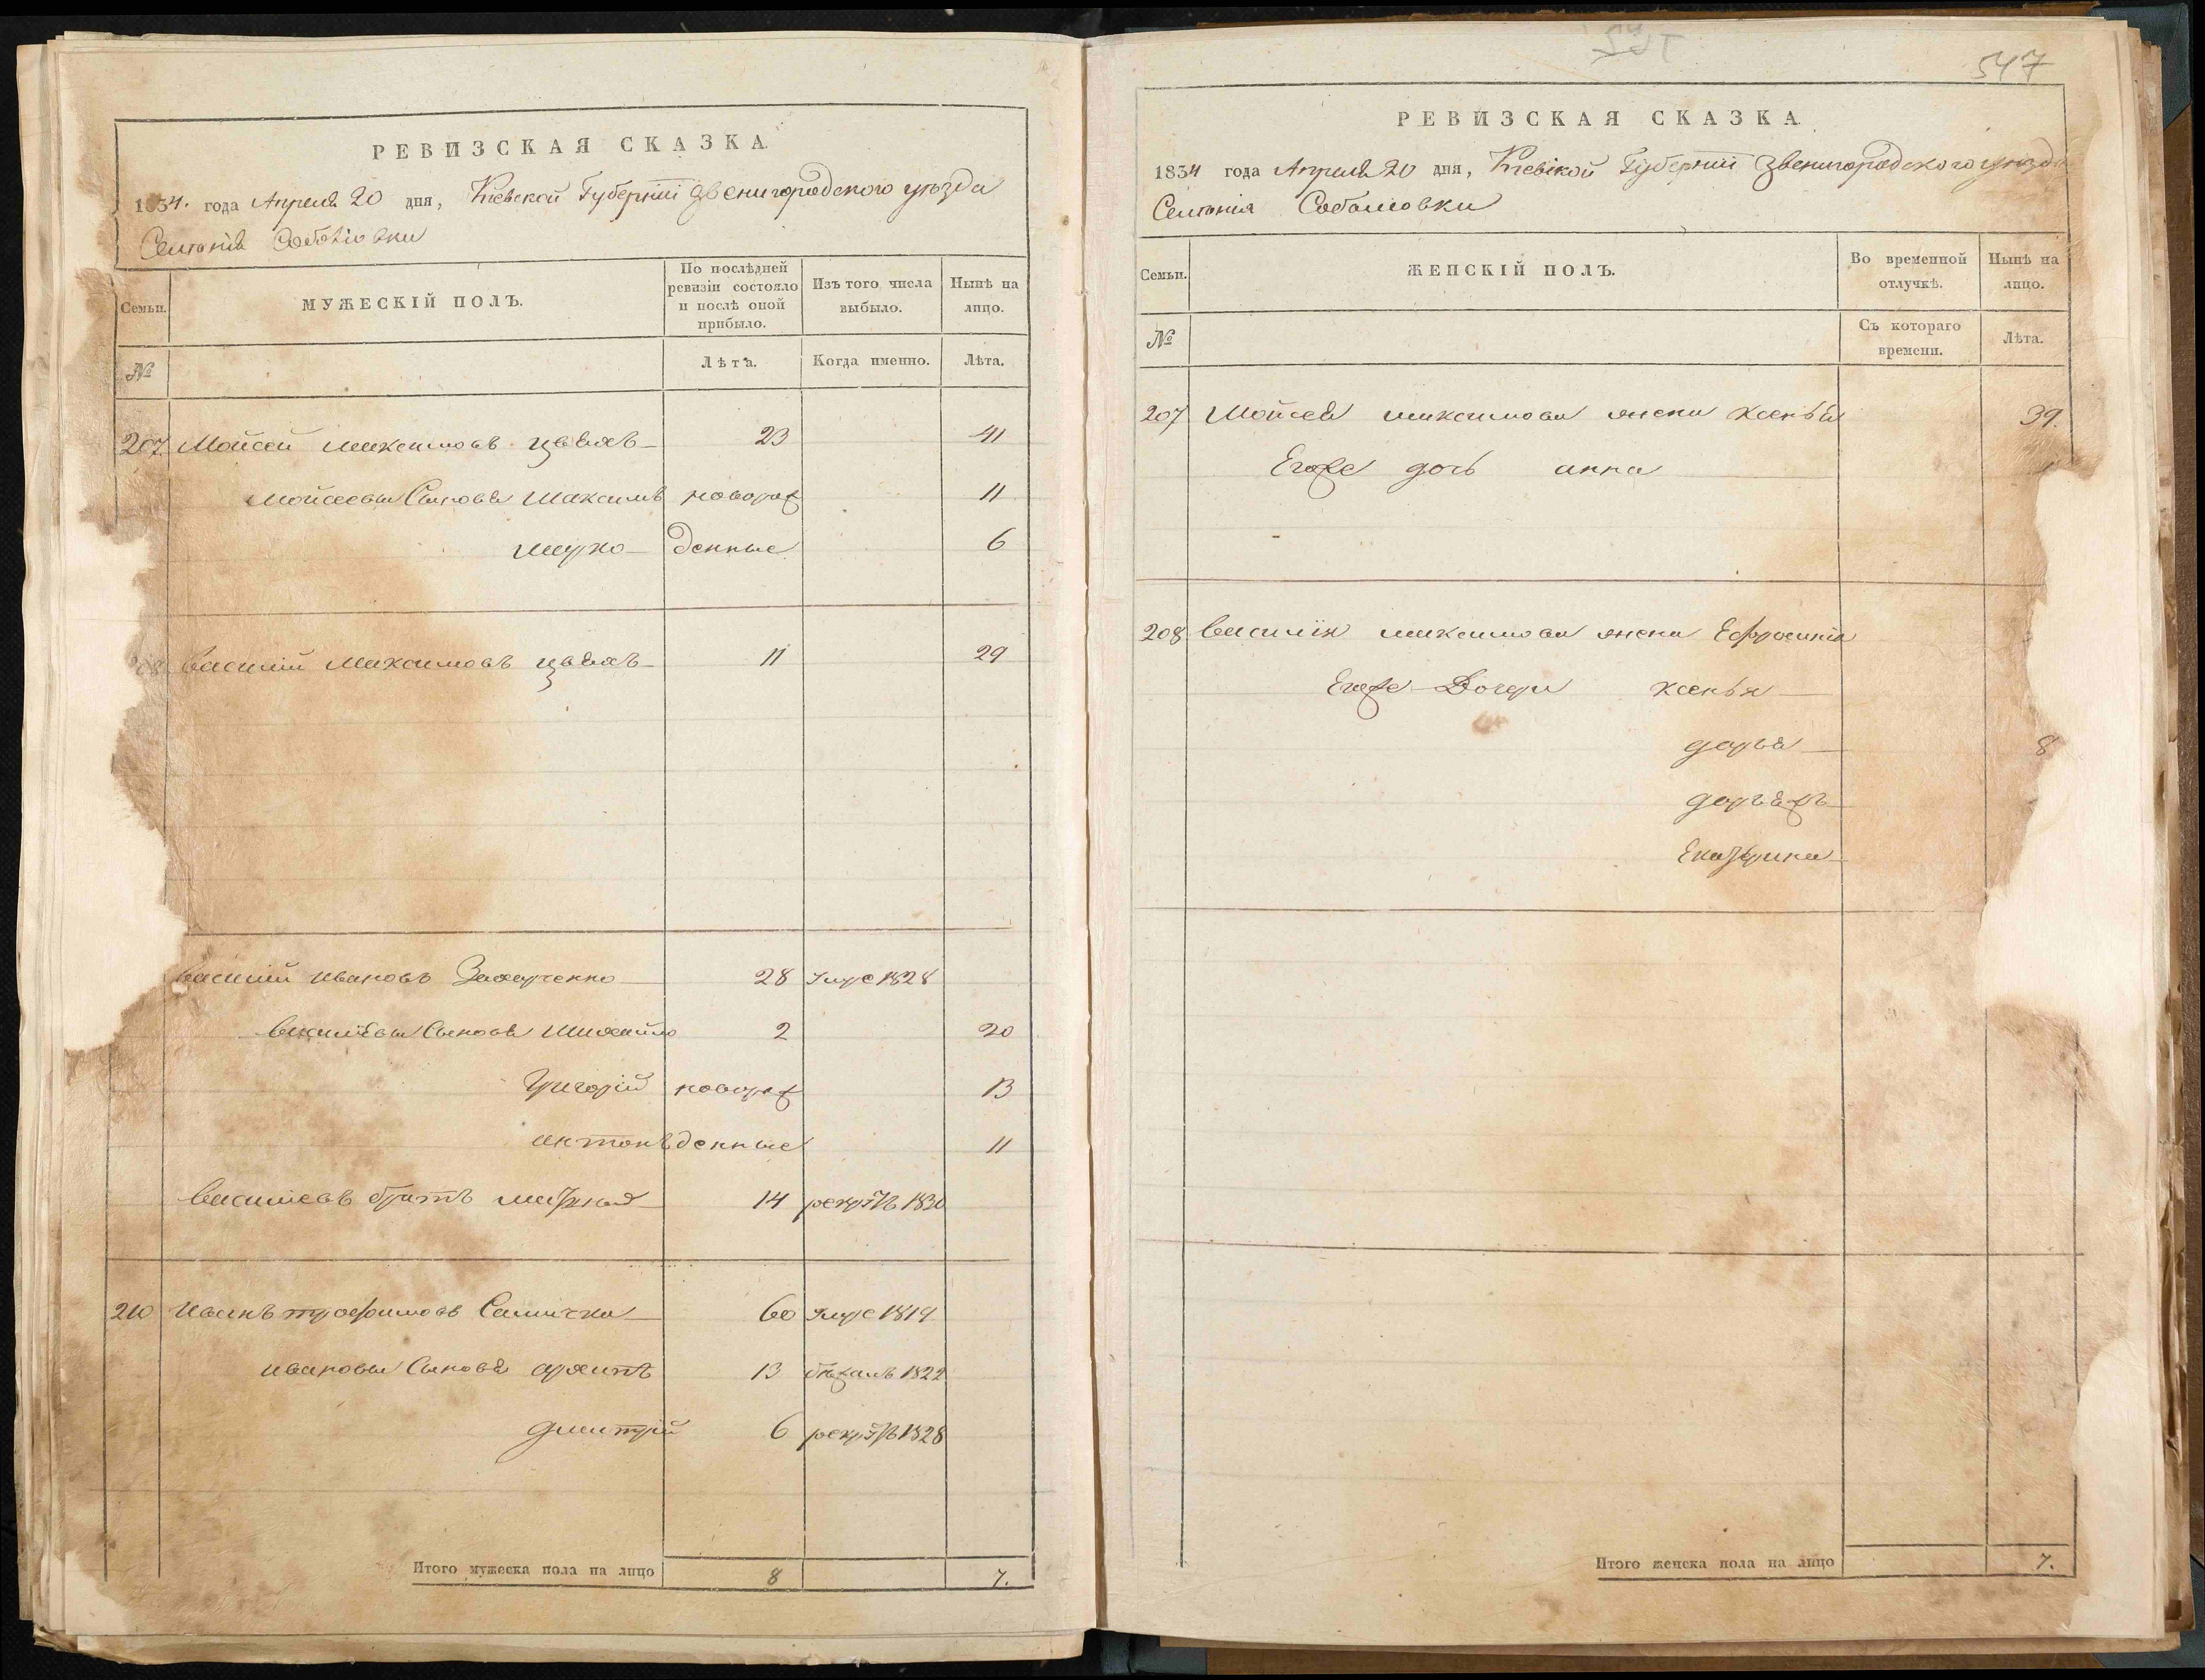 РЕВИЗСКАЯ СКАЗКА.
1834. года Апреля 20 дня, Кіевской Губерніи Звенигородского уѣзда
Селенія Соболювки
Семьи.
МУЖЕСКІЙ ПОЛЪ.
По послѣдней ревизіи состояло и послѣ оной прибыло.
Изъ того числа выбыло.
Нынѣ на лицо.
№
Лѣта.
Когда именно.
Лѣта.
207 Мойсей Максимовъ Цвѣяхъ 23 41
Мойсеевы Сыновья Максимъ новорож 11
Марко денные 6
208 Василій Максимовъ Цвѣяхъ 11 29
Василій Ивановъ Захарченко 28 Умре 1828
Василіевы Сыновья Михайло 2 20
Григорій новорож 13
антонъ денные 11
Василіевъ братъ 14 рекрутъ 1830
210 Иванъ трофимовъ Самичка 60 Умре 1819
Ивановы Сыновья архипъ 13 бѣжалъ 1822
дмитрій 6 рекрутъ 1828
Итого мужеска пола на лицо 8 7.
547
РЕВИЗСКАЯ СКАЗКА.
1834 года Апреля 20 дня, Кіевской Губерніи Звенигородского уѣзда
Селенія Соболювки
Семьи.
ЖЕНСКІЙ ПОЛЪ.
Во временной отлучкѣ.
Нынѣ на лицо.
№
Съ котораго времени.
Лѣта.
207 Мойсея максимова жена Ксенья 39.
Егоже дочь анна
208 Василія максимова жена Ефросинія
Егоже Дочери ксенья
дарья 8
дарья ж
Екатерина
Итого женска пола на лицо 7.